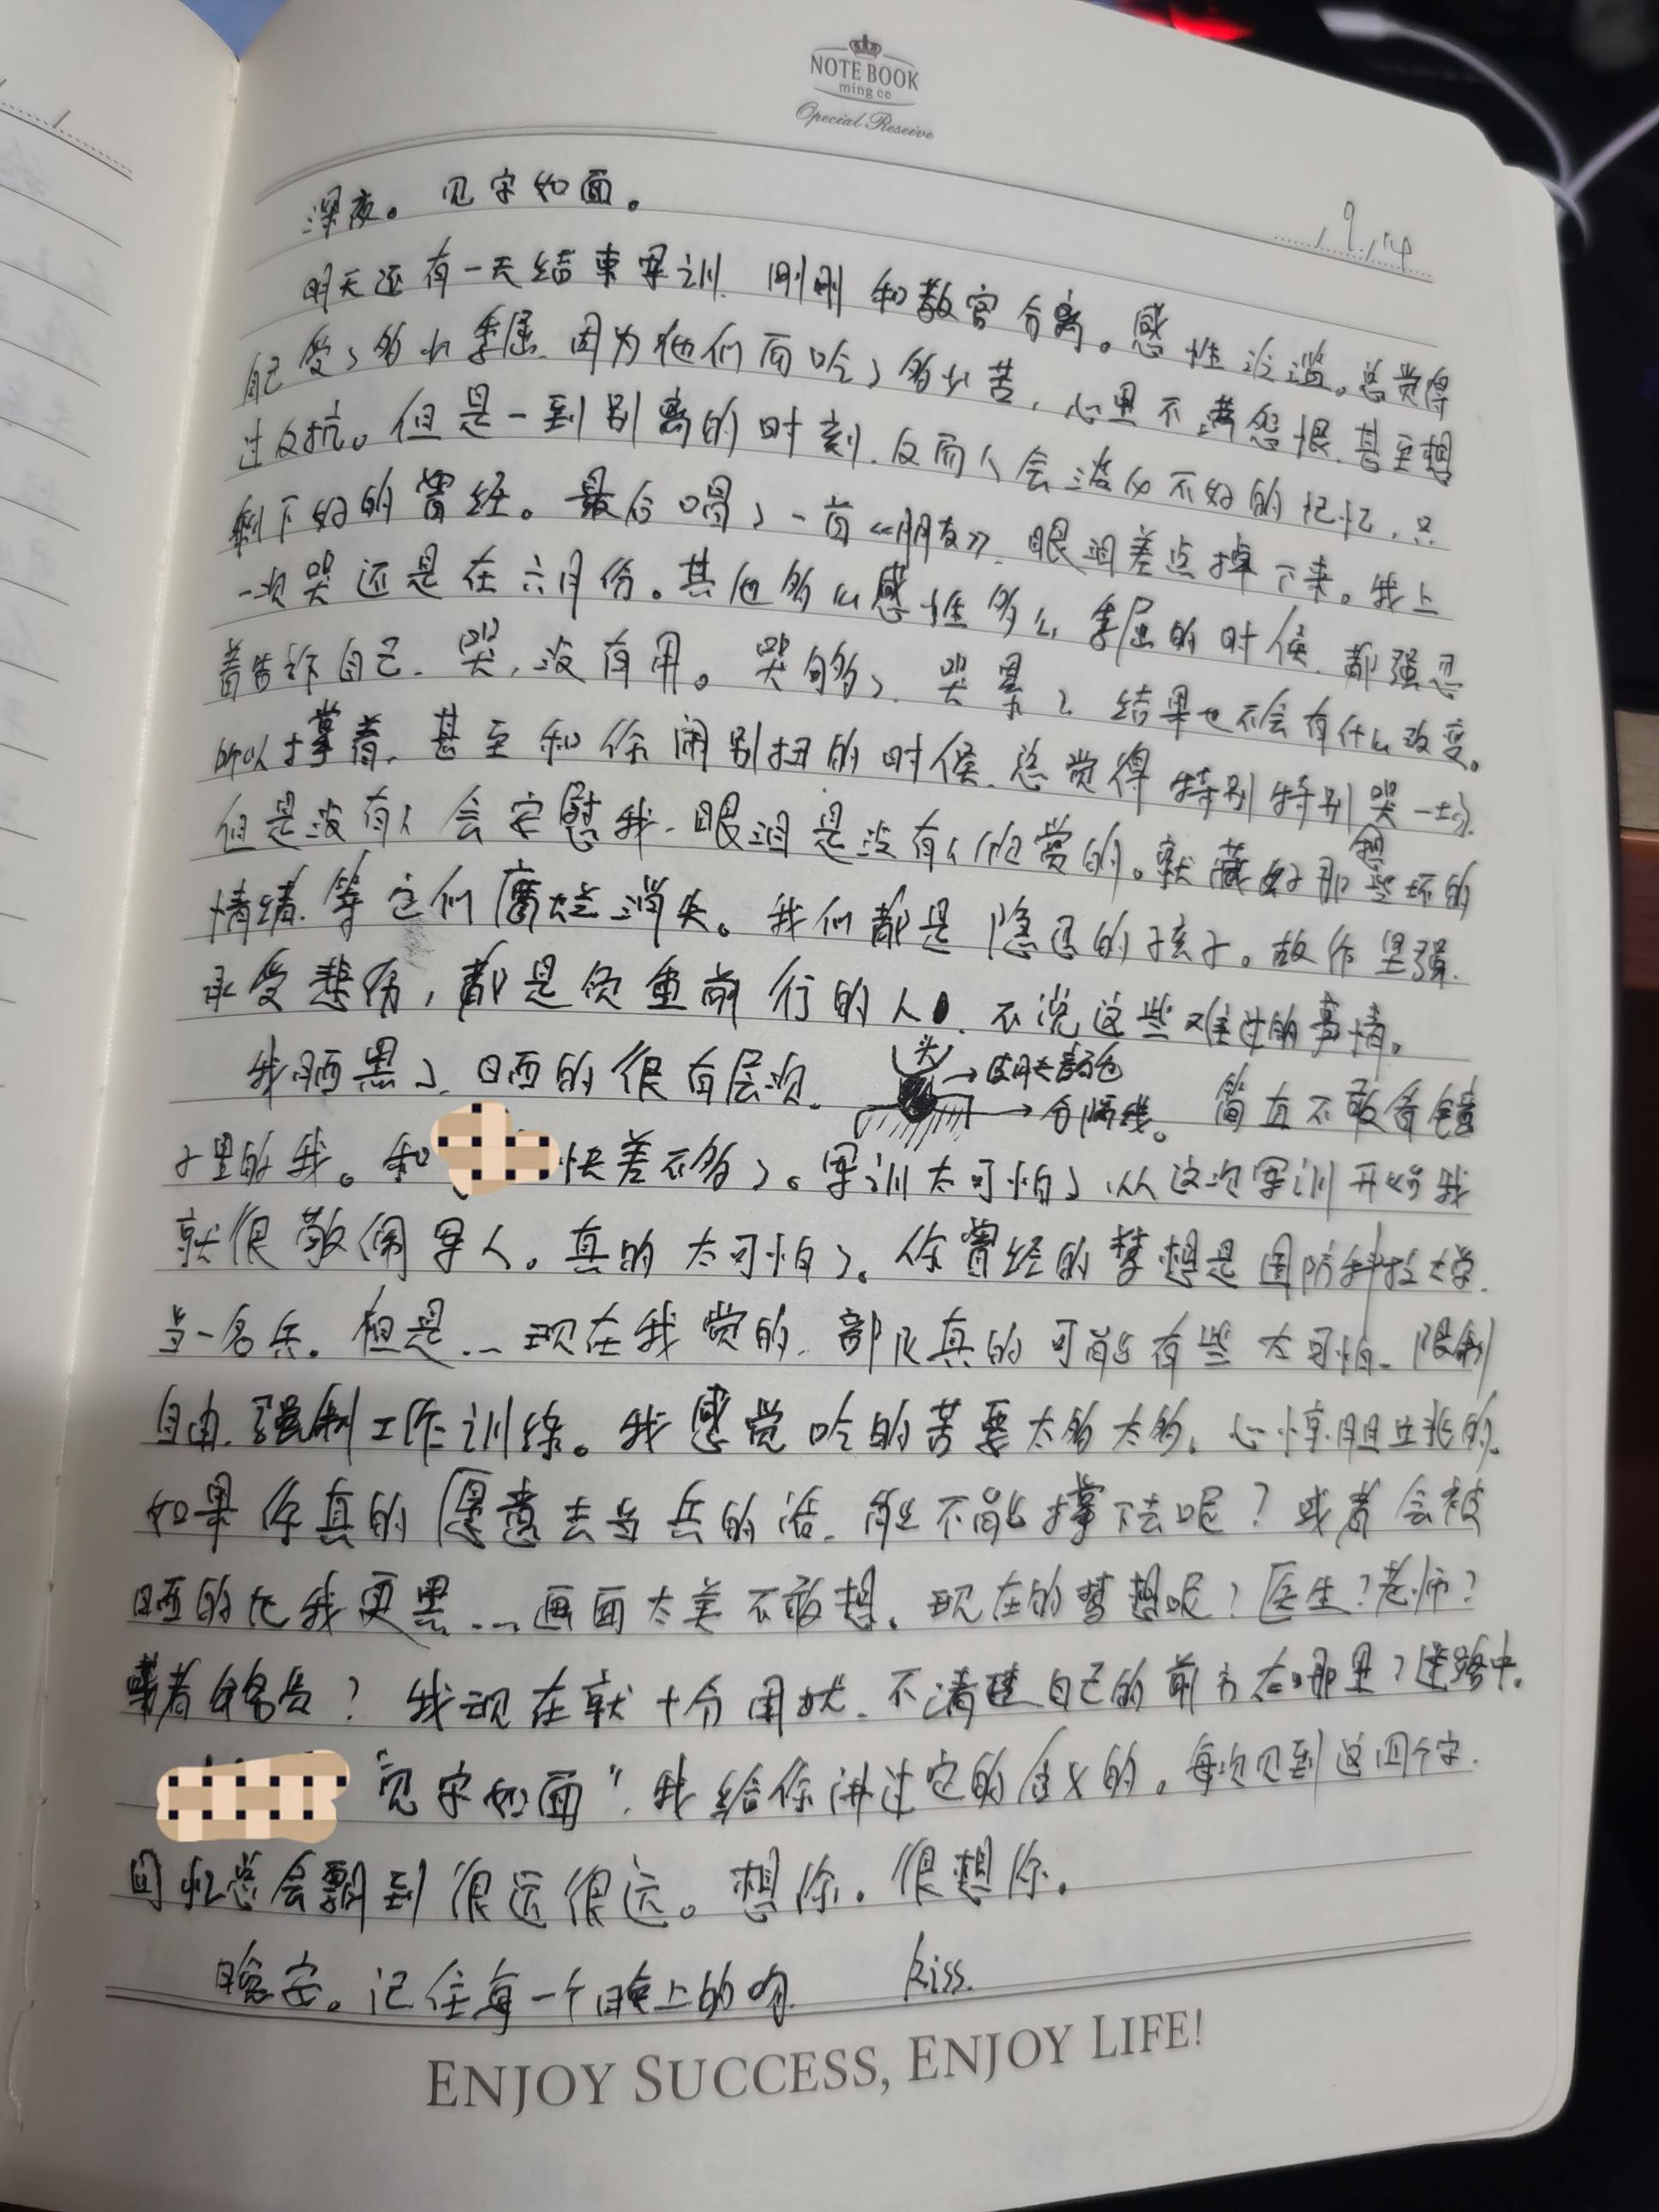 NOTE BOOK
ming ce
Special Reseive
9.14
深夜。见字如面。
明天还有一天结束军训.刚刚和教官分离。感性泛滥。总觉得
自己受了多少委屈.因为他们而吃了多少苦,心里不满怨恨.甚至想
过反抗。但是一到别离的时刻.反而人会淡化不好的记忆,只
剩下好的曾经。最后唱了一首《朋友》.眼泪差点掉下来。我上
一次哭还是在六月份。其他多么感性多么委屈的时候.都强忍
着告诉自己.哭,没有用。哭够了.哭累了结果也不会有什么改变。
所以撑着.甚至和你闹别扭的时候.总觉得特别特别想哭一场.
但是没有人会安慰我.眼泪是没有人欣赏的。就藏好那些坏的
情绪.等它们腐烂消失。我们都是隐忍的孩子。故作坚强.
承受悲伤,都是负重前行的人.不说这些难过的事情。
我晒黑了.晒的很有层次.
头
→皮肤老颜色
→分隔线。
简直不敢看镜
子里的我。和 快差不多了。军训太可怕了.从这次军训开始我
就很敬佩军人。真的太可怕了。你曾经的梦想是国防科技大学.
当一名兵。但是...现在我觉的.部队真的可能有些太可怕.限制
自由.强制工作训练。我感觉吃的苦要太多太多.心惊胆颤的.
如果你真的愿意去当兵的话.能不能撑下去呢?或者会被
晒的比我更黑...画面太美不敢想.现在的梦想呢?医生?老师?
或者 ?我现在就十分困扰.不清楚自己的前方在哪里?迷路中.
“见字如面”.我给你讲过它的含义的。每次见到这四个字.
回忆总会飘到很远很远。想你.很想你.
晚安。记住每一个晚上的吻. kiss.
ENJOY SUCCESS, ENJOY LIFE!